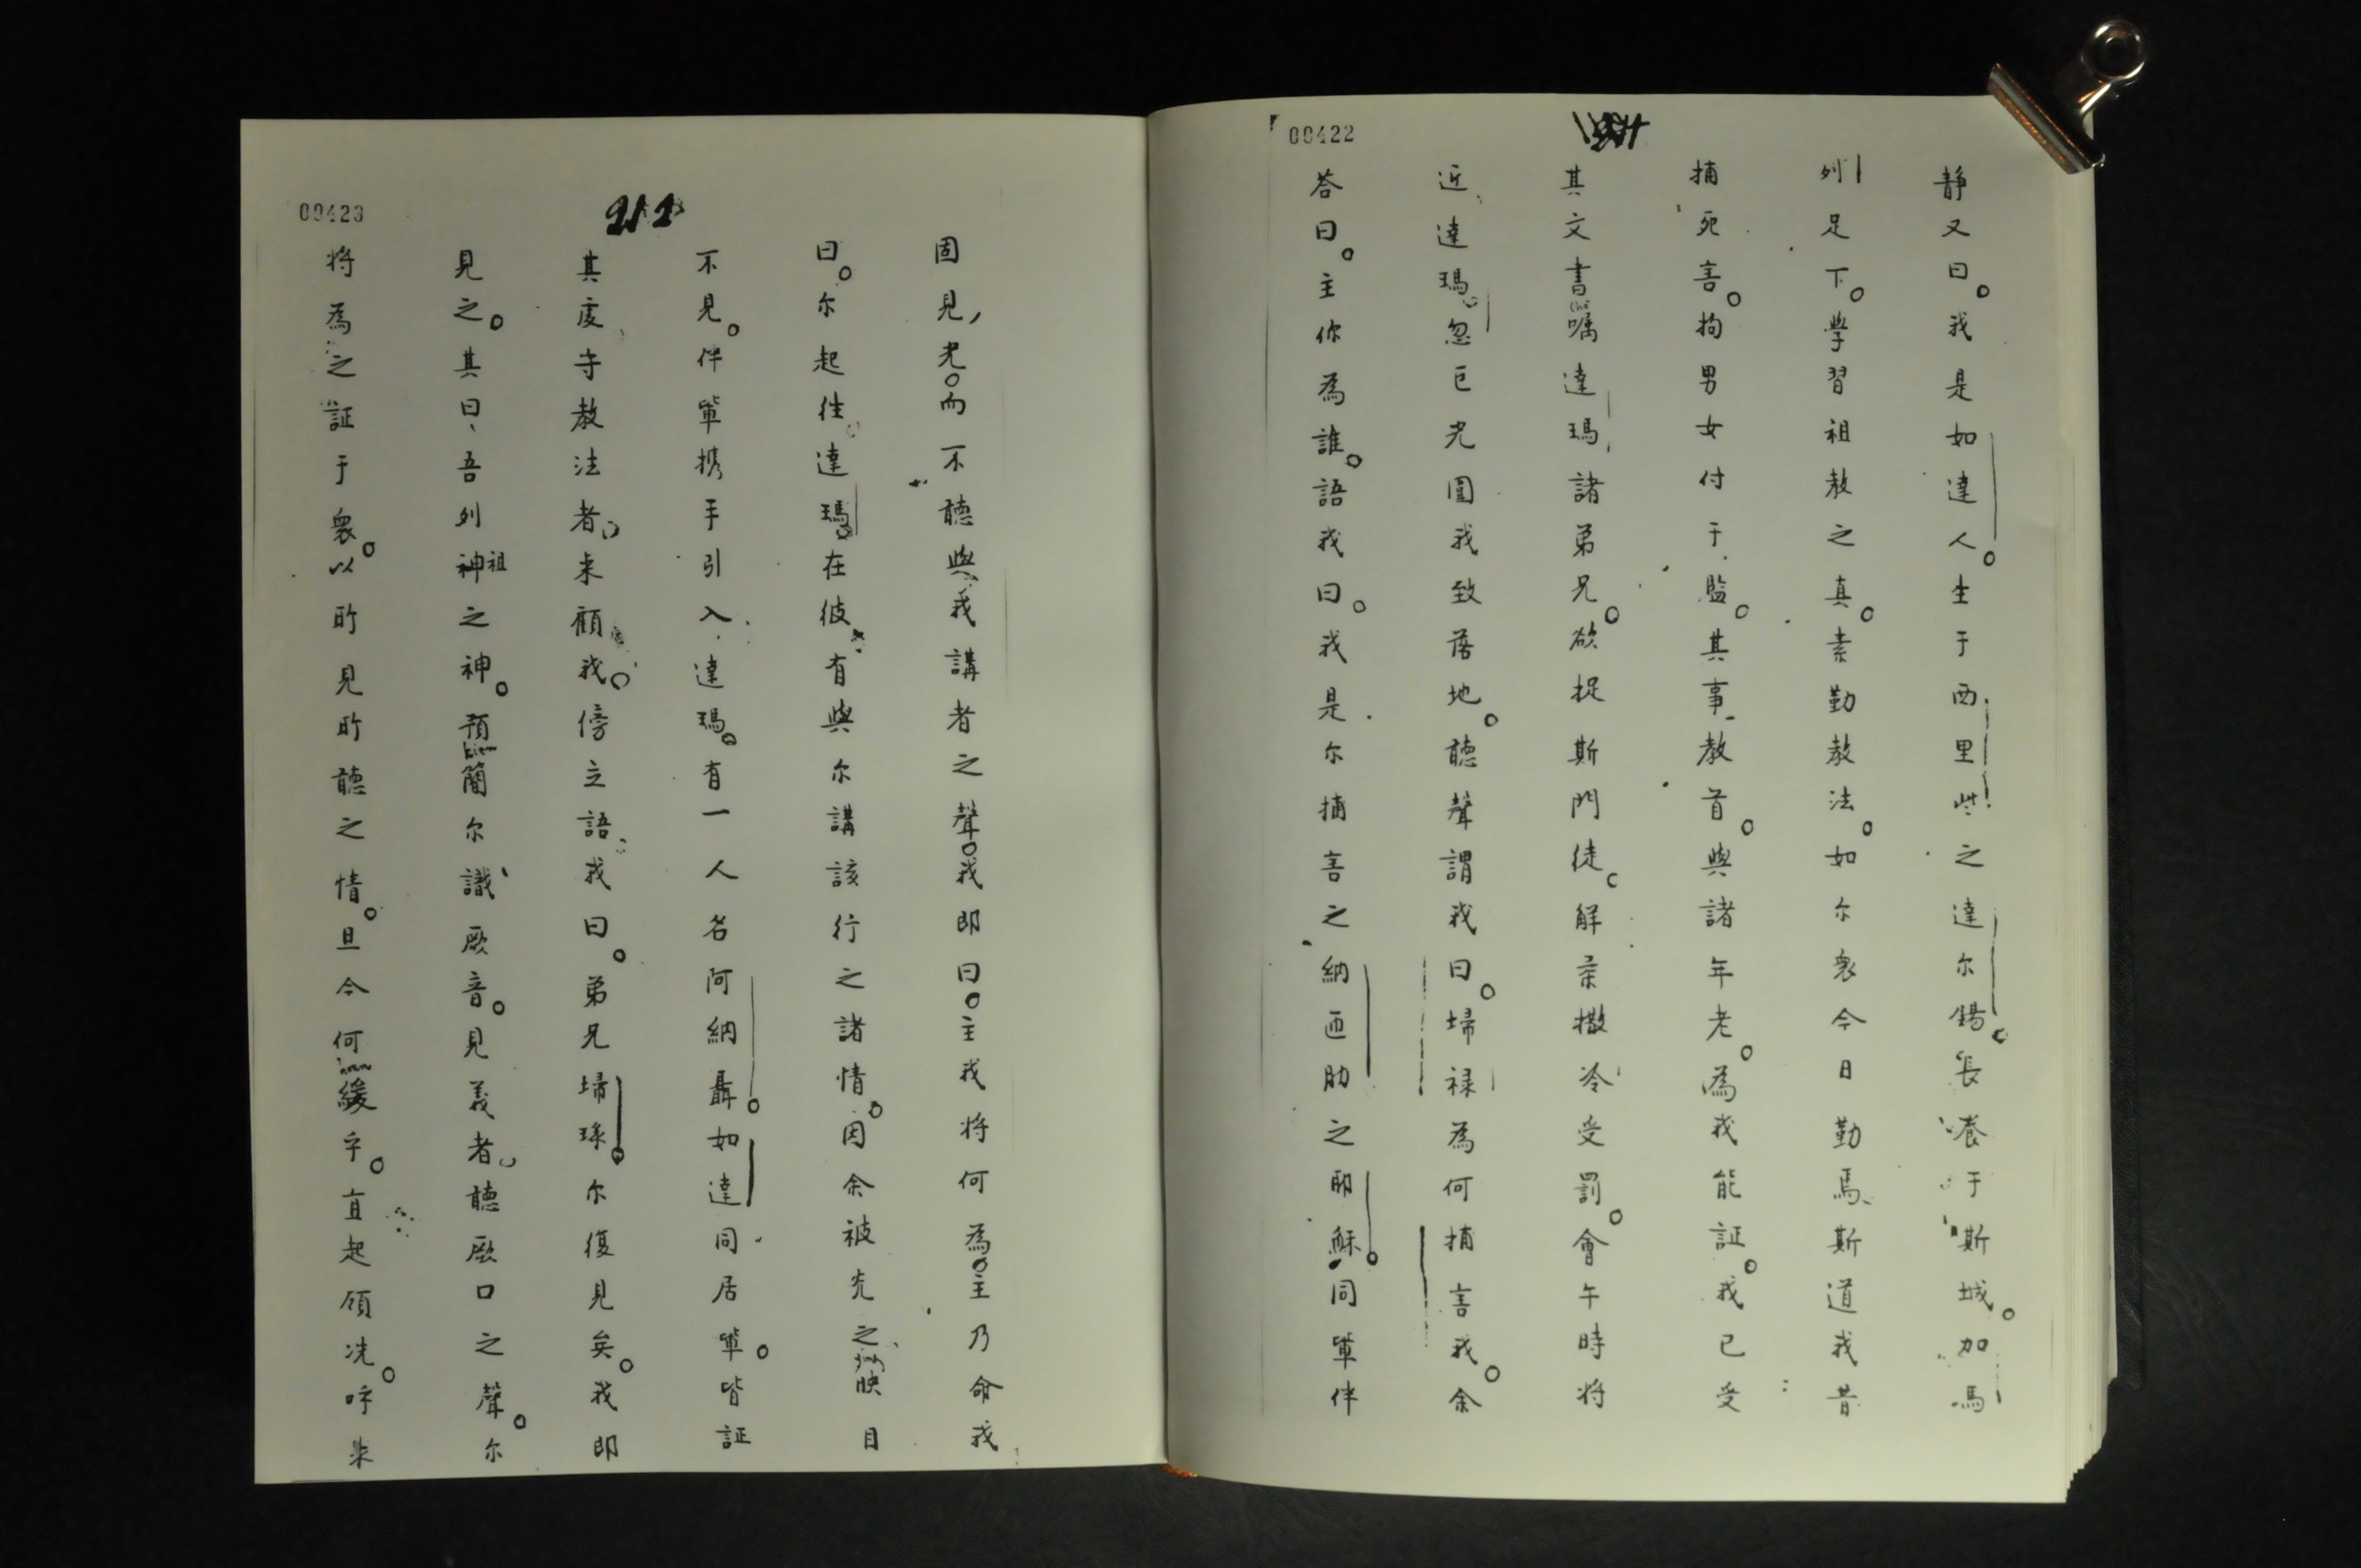 00422
靜又曰。我是如達人。生于西里些之達尔錫。長養于斯城。加馬
列足下。學習祖教之真。素勤教法。如尔衆今日勤焉、斯道我昔
捕死害。拘男女付于監。其事教首。與諸年老。為我能証。我已受
其文書嘱達瑪諸弟兄。欲捉斯門徒。解柔撒冷受罰。會午時將
近達瑪。忽巨光圍我致落地。聽聲謂我曰。埽祿為何捕害我。余
答曰。主你為誰。語我曰。我是尔捕害之納匝肋之耶穌。同軰伴
00423
211
固見，光。而不聽與我講者之聲。我即曰。主我將何為。主乃命我
曰。尔起徃。達瑪。在彼有與尔講該行之諸情。因余被光之映目
不見。伴軰携手引入達瑪。有一人名阿納聶。如達同居軰。皆証
其虔守教法者。来顧我。傍立語我曰。弟兄埽琭。尔復見矣。我即
見之。其曰、吾列神祖之神。預簡尔識厥音。見義者。聽厥口之聲。尔
將為之証于衆。以所見所聽之情。且今何緩乎。直起領洗。呼朱